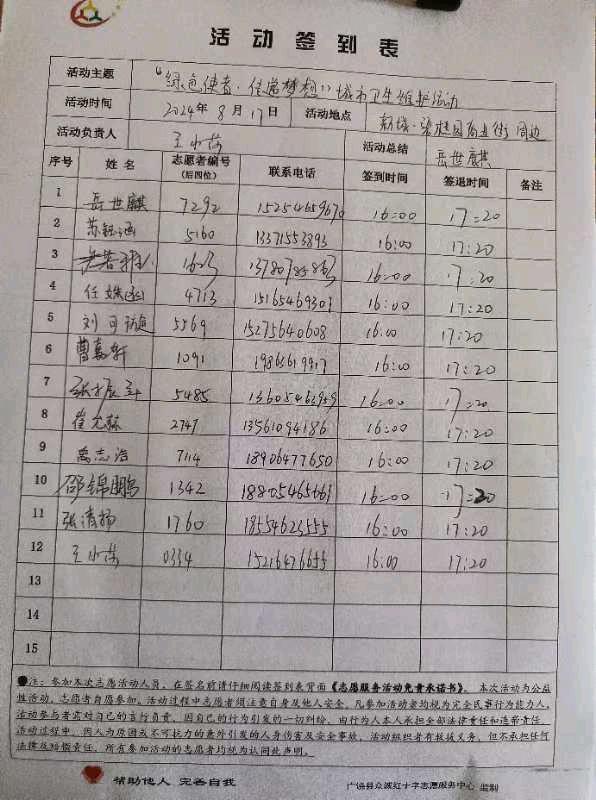 活动签到表
活动主题 “绿色使者·传递梦想”城市卫生维护活动
活动时间 2024年8月17日 活动地点 商业街周边
活动负责人 王小芬 活动总结 岳世麒
序号 姓名 志愿者编号(后四位) 联系电话 签到时间 签退时间 备注
1 岳世麒 7292 15254659670 16:00 17:20
2 苏钰涵 5160 13371553393 16:00 17:20
3 16:00 17:20
4 任姝 4713 15165469307 16:00 17:20
5 刘可 5569 15275640608 16:00 17:20
6 曹嘉轩 1091 16:00 17:20
7 张振 5485 16:00 17:20
8 崔允 2747 13561094186 16:00 17:20
9 志浩 7114 18906477650 16:00 17:20
10 邵锦鹏 1342 16:00 17:20
11 张清扬 1760 18554623555 16:00 17:20
12 王小芬 0334 15216476655 16:00 17:20
13
14
15
●注：参加本次志愿活动人员，在签名前请仔细阅读签到表背面《志愿服务活动免责承诺书》。本次活动为公益
性活动，志愿者自愿参加。活动过程中志愿者须注意自身及他人安全。凡参加活动者均视为完全民事行为能力人，
活动参与者需对自己的言行负责，因自己的行为引发的一切纠纷，由行为人本人承担全部法律责任和连带责任。
活动过程中，因人为原因或不可抗力的意外引发的人身伤害及安全事故，活动组织者有救援义务，但不承担任何
法律及赔偿责任。所有参加活动的志愿者均视为认同此声明。
帮助他人 完善自我 广饶县众诚红十字志愿服务中心 监制